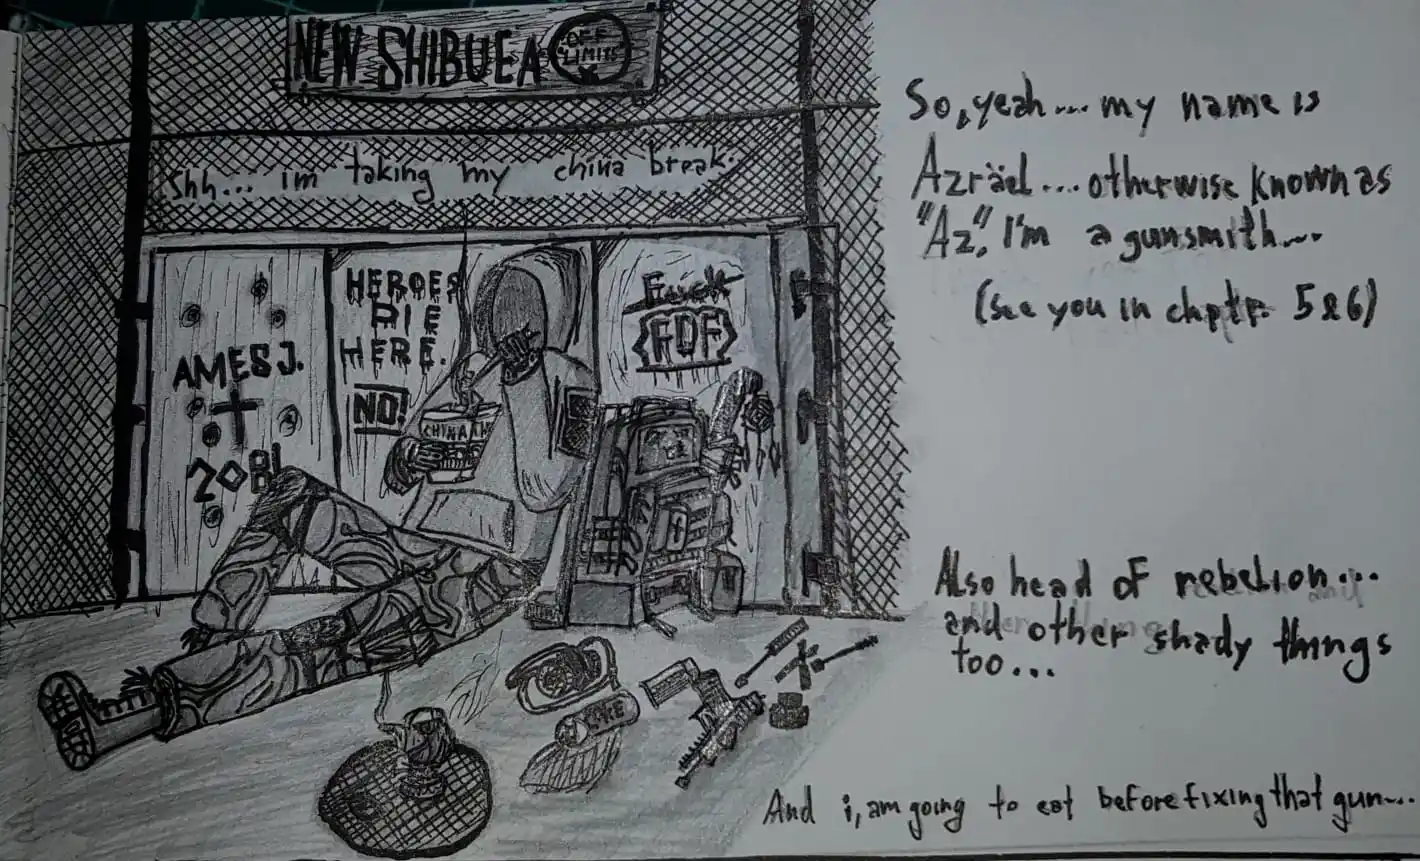 NEW SHIBUEA
OFF
LIMITS
Shh... im taking my china break.
AMES J.
20BL
HEROES
DIE
HERE.
NO!
Fuck
FDF
CHINA
COKE
So, yeah... my name is
Azräel.... otherwise known as
"Az". I'm a gunsmith...
(See you in chptr. 5&6)
Also head of rebelion...
and other shady things
too...
And i, am going to eat before fixing that gun...